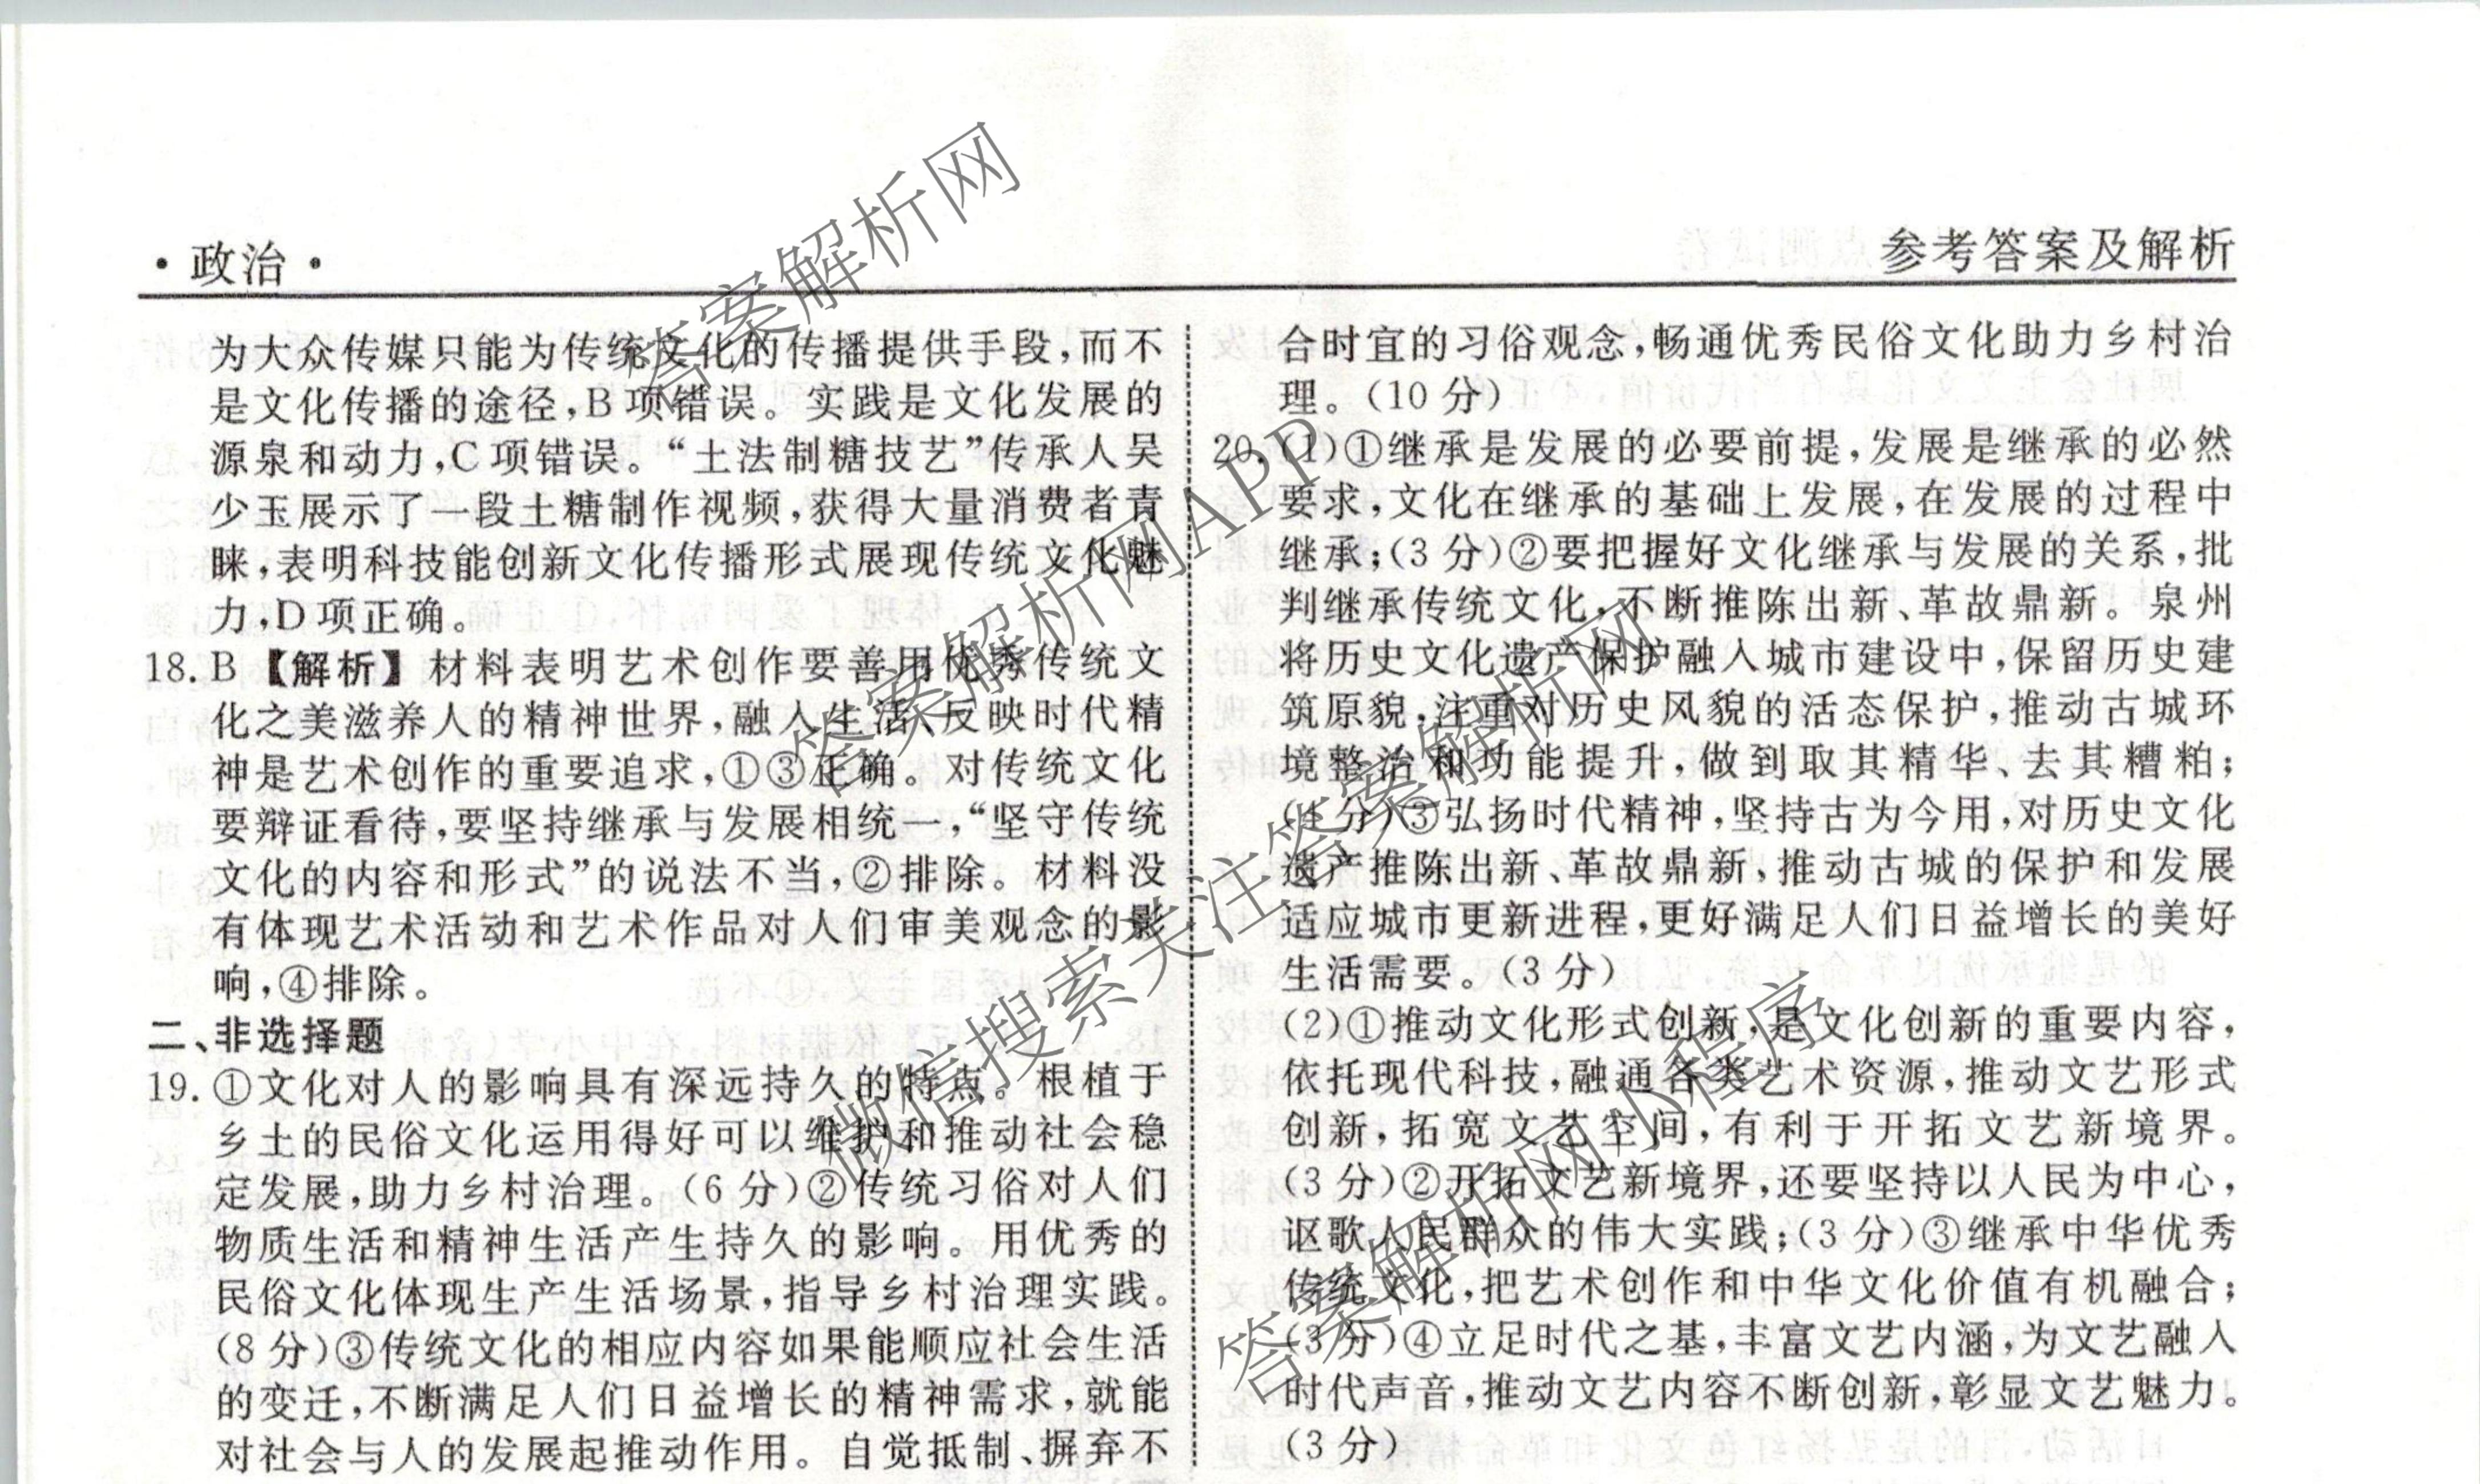 ·政治·
参考答案及解析
为大众传媒只能为传统文化的传播提供手段,而不
是文化传播的途径,B项错误。实践是文化发展的
源泉和动力,C项错误。“土法制糖技艺”传承人吴
少玉展示了一段土糖制作视频,获得大量消费者青
睐,表明科技能创新文化传播形式展现传统文化魅
力,D项正确。
18. B【解析】材料表明艺术创作要善用优秀传统文
化之美滋养人的精神世界,融入生活、反映时代精
神是艺术创作的重要追求,①③正确。对传统文化
要辩证看待,要坚持继承与发展相统一,“坚守传统
文化的内容和形式”的说法不当,②排除。材料没
有体现艺术活动和艺术作品对人们审美观念的影
响,④排除。
二、非选择题
19. ①文化对人的影响具有深远持久的特点。根植于
乡土的民俗文化运用得好可以维护和推动社会稳
定发展,助力乡村治理。(6分)②传统习俗对人们
物质生活和精神生活产生持久的影响。用优秀的
民俗文化体现生产生活场景,指导乡村治理实践。
(8分)③传统文化的相应内容如果能顺应社会生活
的变迁,不断满足人们日益增长的精神需求,就能
对社会与人的发展起推动作用。自觉抵制、摒弃不
合时宜的习俗观念,畅通优秀民俗文化助力乡村治
理。(10分)
20. (1)①继承是发展的必要前提,发展是继承的必然
要求,文化在继承的基础上发展,在发展的过程中
继承;(3分)②要把握好文化继承与发展的关系,批
判继承传统文化,不断推陈出新、革故鼎新。泉州
将历史文化遗产保护融入城市建设中,保留历史建
筑原貌,注重对历史风貌的活态保护,推动古城环
境整治和功能提升,做到取其精华、去其糟粕;
(4分)③弘扬时代精神,坚持古为今用,对历史文化
遗产推陈出新、革故鼎新,推动古城的保护和发展
适应城市更新进程,更好满足人们日益增长的美好
生活需要。(3分)
(2)①推动文化形式创新,是文化创新的重要内容,
依托现代科技,融通各类艺术资源,推动文艺形式
创新,拓宽文艺空间,有利于开拓文艺新境界。
(3分)②开拓文艺新境界,还要坚持以人民为中心,
讴歌人民群众的伟大实践;(3分)③继承中华优秀
传统文化,把艺术创作和中华文化价值有机融合;
(3分)④立足时代之基,丰富文艺内涵,为文艺融入
时代声音,推动文艺内容不断创新,彰显文艺魅力。
(3分)
答案解析网
答案解析网APP
微信搜索关注答案解析网
答案解析网小程序